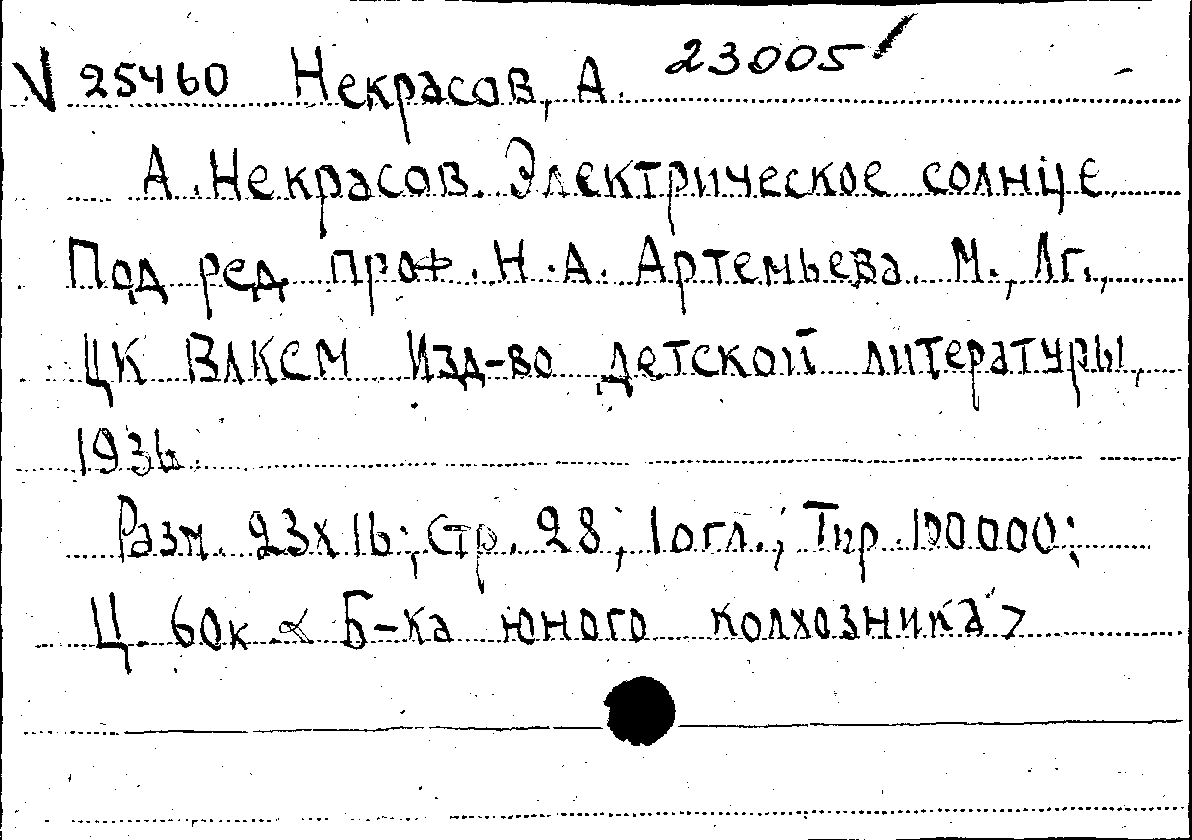 V 25460 Некрасов, А. 23005
А. Некрасов. Электрическое солнце.
Под ред. проф. Н. А. Артемьева. М., Лг.,
ЦК ВЛКСМ Изд-во детской литературы,
1936.
Разм. 23х16; Стр. 28; 1 огл.; Тир. 100000;
Ц. 60к < Б-ка юного колхозника >